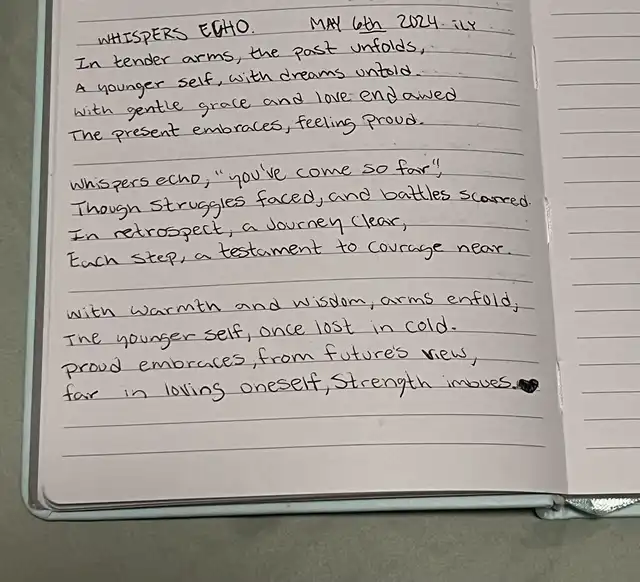 WHISPERS ECHO. MAY 6th 2024. ily
In tender arms, the past unfolds,
A younger self, with dreams untold.
with gentle grace and love endawed
The present embraces, feeling proud.
Whispers echo, "you've come so far",
Though struggles faced, and battles scarred.
In retrospect, a journey clear,
Each step, a testament to courage near.
with warmth and wisdom, arms enfold,
The younger self, once lost in cold.
proud embraces, from future's view,
for in loving oneself, strength imbues.